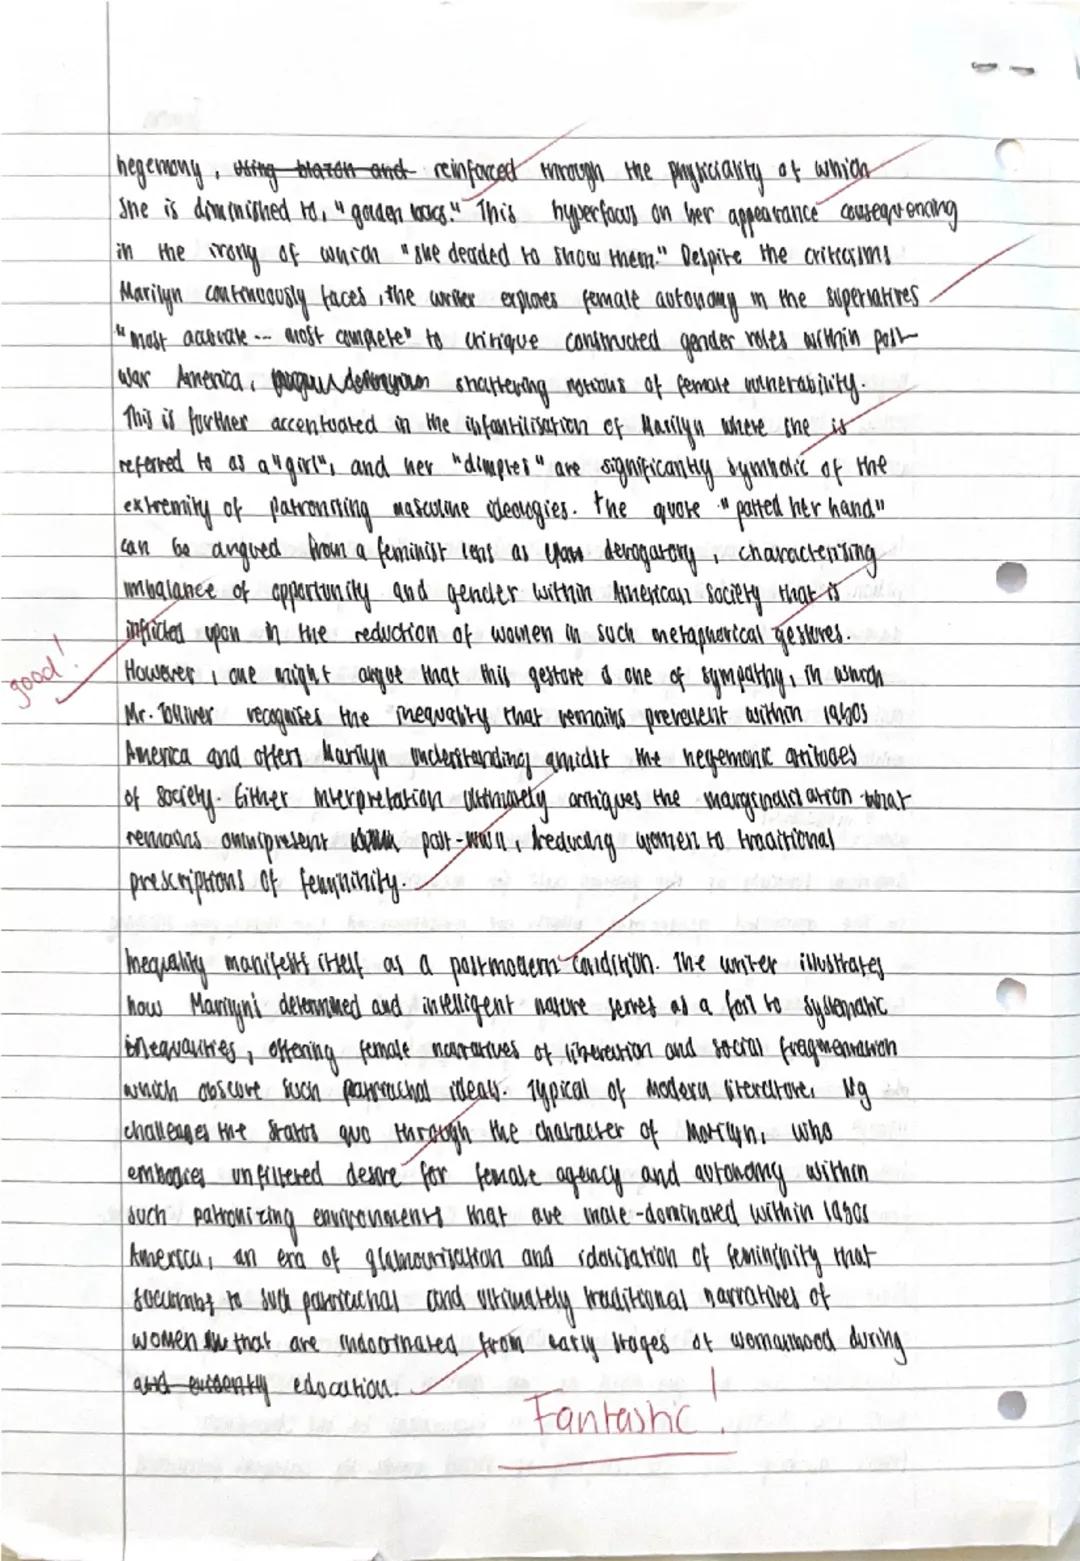 hegemony, using blazon and reinforced through the physicality of which
she is diminished to, "golden locks." This hyperfocus on her appearance consequencing
in the irony of which "she decided to show them." Despite the criticisms
Marilyn continuously faces, the writer explores female autonomy in the superlatives
"most accurate -- most complete" to critique constructed gender roles within post-
war America, shattering notions of female vulnerability.
This is further accentuated in the infantilisation of Marilyn where she is
referred to as a "girl", and her "dimples" are significantly symbolic of the
extremity of patronising masculine ideologies. The quote "patted her hand"
can be argued from a feminist lens as derogatory, characterising
imbalance of opportunity and gender within American society that is
inflicted upon in the reduction of women in such metaphorical gestures.
good!
However, one might argue that this gesture is one of sympathy, in which
Mr. Tolliver recognises the inequality that remains prevelent within 1950s
America and offers Marilyn understanding amidst the hegemonic attitudes
of society. Either interpretation ultimately critiques the marginalisation that
remains omnipresent post-WWII, reducing women to traditional
prescriptions of femininity.
Inequality manifests itself as a postmodern condition. The writer illustrates
how Marilyn's determined and intelligent nature serves as a foil to systematic
inequalities, offering female narratives of liberation and social fragmentation
which obscure such patriachal ideals. Typical of modern literature, Ng
challenges the status quo through the character of Marilyn, who
embodies unfiltered desire for female agency and autonomy within
such patronizing environments that are male-dominated within 1950s
America, an era of glamourisation and idolisation of femininity that
succumbs to such patriachal and ultimately traditional narratives of
women that are indoctrinated from early stages of womanhood during
and evidently education.
Fantastic!